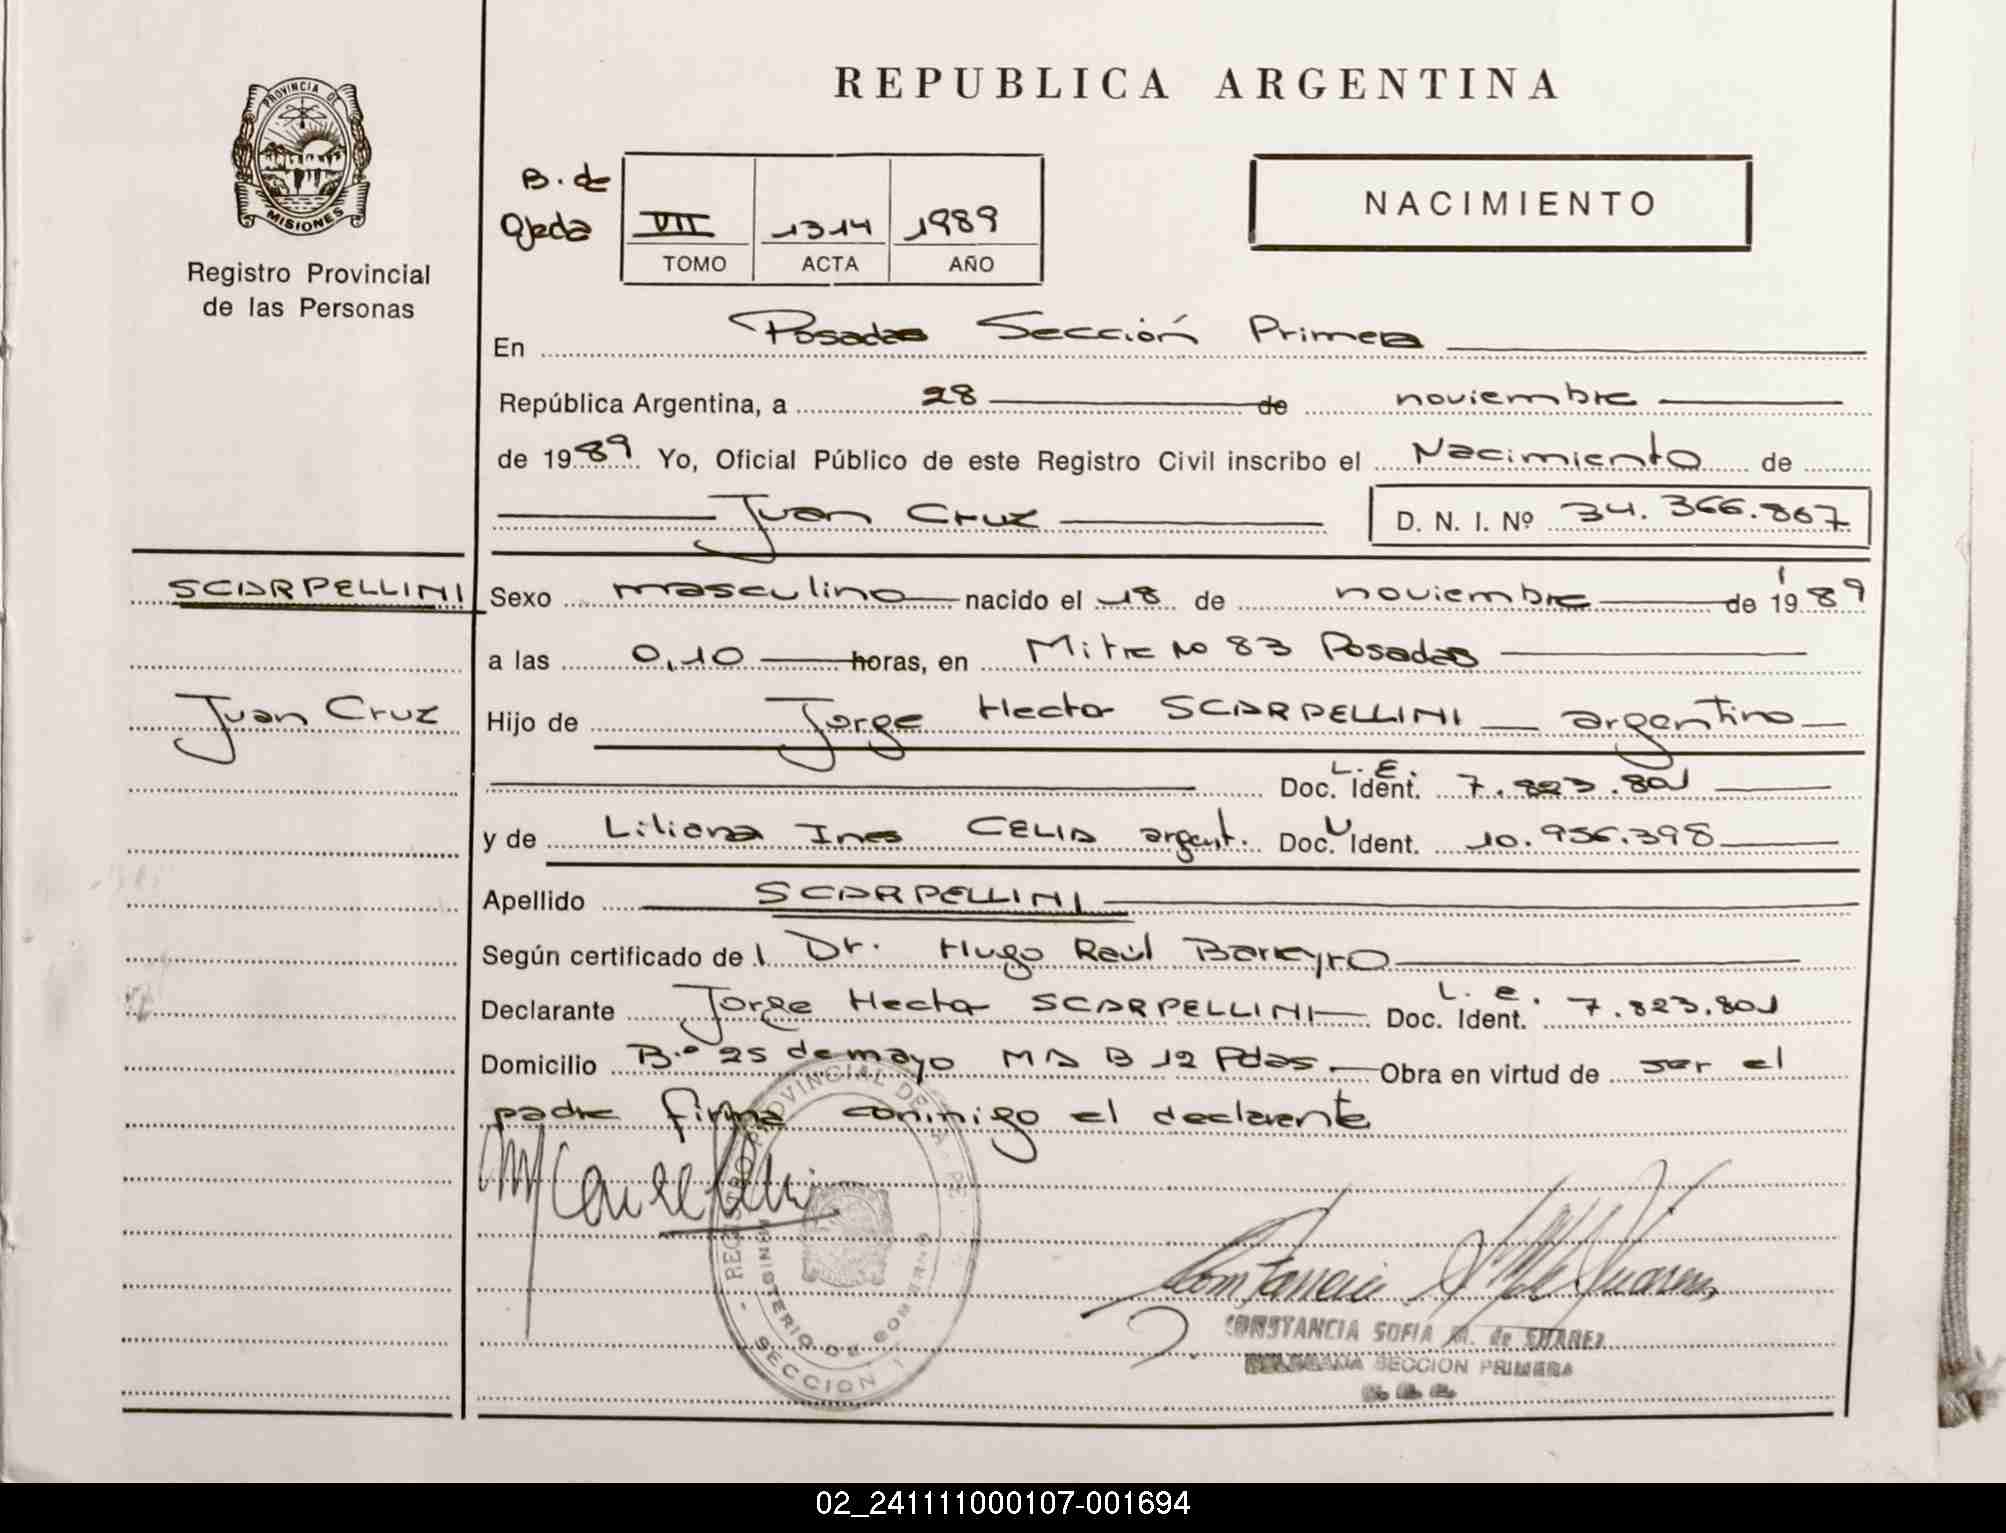 REPUBLICA ARGENTINA
PROVINCIA DE
MISIONES
Registro Provincial
de las Personas
B. de
Ojeda
VII 1314 1989
TOMO ACTA AÑO
NACIMIENTO
En Posadas Sección Primera
República Argentina, a 28 de noviembre
de 1989 Yo, Oficial Público de este Registro Civil inscribo el Nacimiento de
Juan Cruz D. N. I. Nº 34.366.867
SCARPELLINI
Juan Cruz
Sexo masculino nacido el 18 de noviembre de 1989
a las 0,10 horas, en Mitre No 83 Posadas
Hijo de Jorge Hector SCARPELLINI argentino
L. E.
Doc. Ident. 7.823.801
y de Liliana Ines CELIA argent. Doc. Ident. 10.956.398
Apellido SCARPELLINI
Según certificado de l Dr. Hugo Raúl Barreyro
Declarante Jorge Hector SCARPELLINI L. e. Doc. Ident. 7.823.801
Domicilio B.º 25 de mayo M A B 12 Pdas. Obra en virtud de ser el
padre firma conmigo el declarante
REGISTRO PROVINCIAL DE LA PE
MINISTERIO DE GOBIERNO
SECCION 1
CONSTANCIA SOFIA M. de SUAREZ
DELEGADA SECCION PRIMERA
02_241111000107-001694